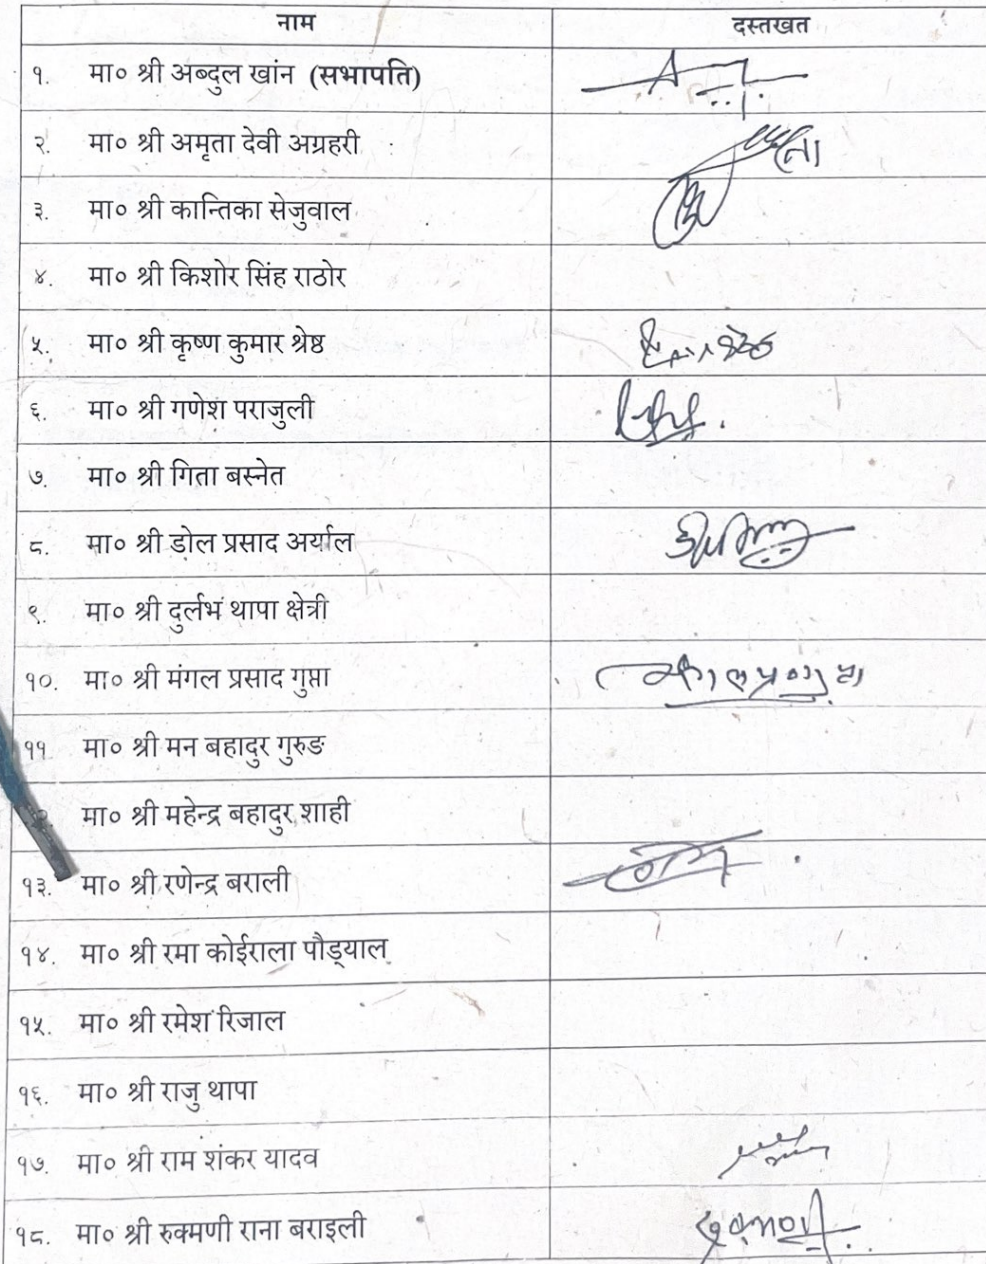 नाम दस्तखत
१. मा० श्री अब्दुल खांन (सभापति)
२. मा० श्री अमृता देवी अग्रहरी
३. मा० श्री कान्तिका सेजुवाल
४. मा० श्री किशोर सिंह राठोर
५. मा० श्री कृष्ण कुमार श्रेष्ठ
६. मा० श्री गणेश पराजुली
७. मा० श्री गिता बस्नेत
८. मा० श्री डोल प्रसाद अर्याल
९. मा० श्री दुर्लभ थापा क्षेत्री
१०. मा० श्री मंगल प्रसाद गुप्ता
११. मा० श्री मन बहादुर गुरुङ
मा० श्री महेन्द्र बहादुर शाही
१३. मा० श्री रणेन्द्र बराली
१४. मा० श्री रमा कोईराला पौड्याल
१५. मा० श्री रमेश रिजाल
१६. मा० श्री राजु थापा
१७. मा० श्री राम शंकर यादव
१८. मा० श्री रुक्मणी राना बराइली